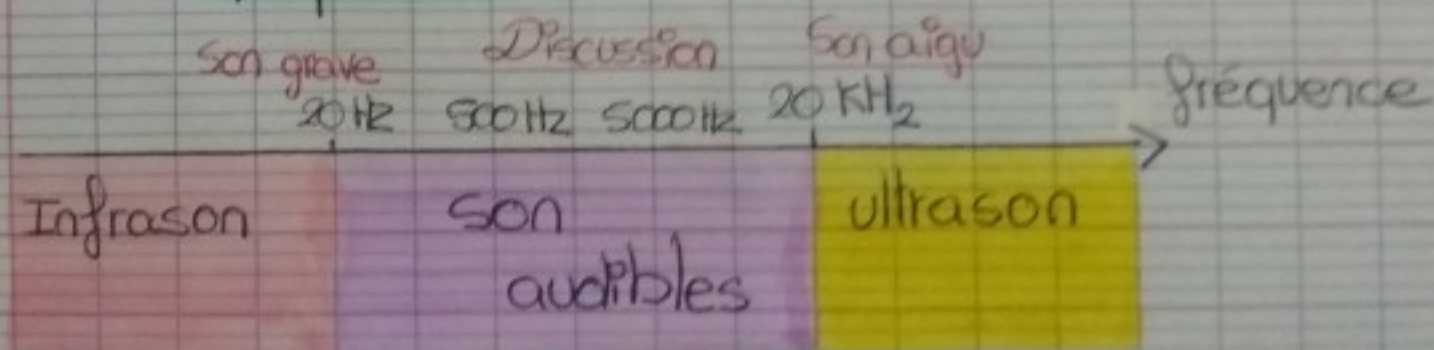 Son grave Discussion Son aigu
20 Hz 500 Hz 5000 Hz 20 KHz fréquence
Infrason son ultrason
audibles